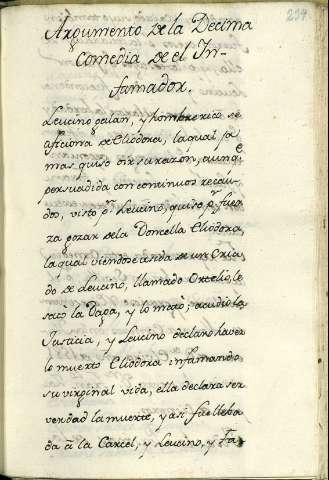 234
Argumento de la Decima
Comedia de el In-
famador.
Leucino galan, y hombre rico se
aficiona de Eliodora, la qual ja
mas quiso oir su razon, aunqe
persuadida con continuos recau-
dos, visto pr Leucino, quiso pr fuer
za gozar dela Doncella Eliodora,
la qual viendose asida de un Cria
do de Leucino, llamado Ortelio, le
sacò la Daga, y lo matò; acudio la
Justicia, y Leucino declaro haver
lo muerto Eliodora infamando
su virginal vida, ella declara ser
verdad la muerte, y asi fue lleba
da à la Carcel, y Leucino, y Fa-